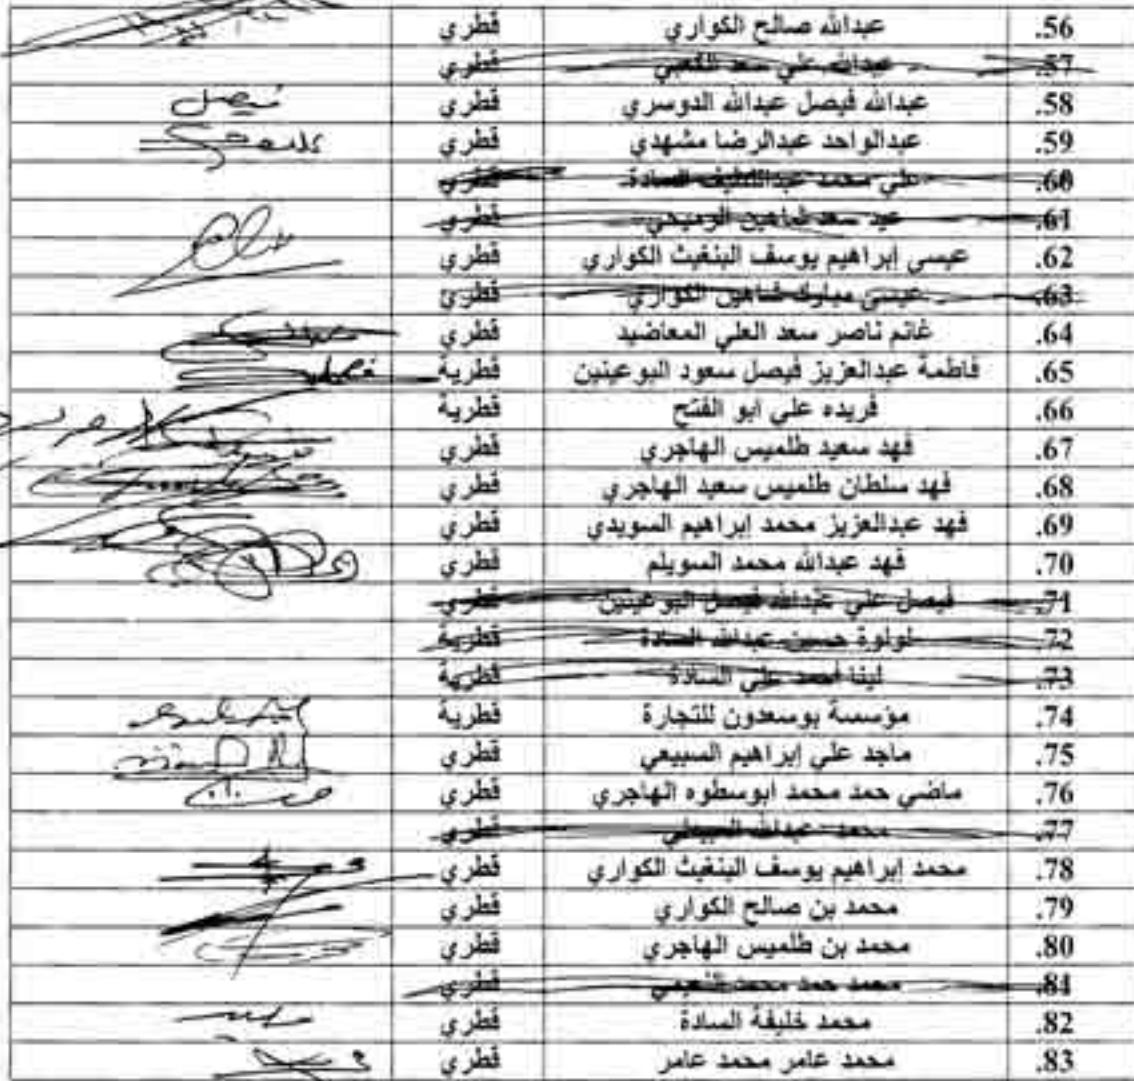 .56 عبدالله صالح الكواري قطري
.57 عبدالله علي سعد الكعبي قطري
.58 عبدالله فيصل عبدالله الدوسري قطري فيصل
.59 عبدالواحد عبدالرضا مشهدي قطري
.60 علي محمد عبداللطيف السادة قطري
.61 عيد سعد شاهين الرميحي قطري
.62 عيسى إبراهيم يوسف البنغيث الكواري قطري
.63 عيسى مبارك شاهين الكواري قطري
.64 غانم ناصر سعد العلي المعاضيد قطري
.65 فاطمة عبدالعزيز فيصل سعود البوعينين قطرية
.66 فريده علي ابو الفتح قطرية
.67 فهد سعيد طلميس الهاجري قطري
.68 فهد سلطان طلميس سعيد الهاجري قطري
.69 فهد عبدالعزيز محمد إبراهيم السويدي قطري
.70 فهد عبدالله محمد السويلم قطري
.71 فيصل علي عبدالله فيصل البوعينين قطري
.72 لولوة حسين عبدالله السادة قطرية
.73 لينا أحمد علي السادة قطرية
.74 مؤسسة بوسعدون للتجارة قطرية
.75 ماجد علي إبراهيم السبيعي قطري
.76 ماضي حمد محمد ابوسطوه الهاجري قطري
.77 محمد عبدالله قطري
.78 محمد إبراهيم يوسف البنغيث الكواري قطري
.79 محمد بن صالح الكواري قطري
.80 محمد بن طلميس الهاجري قطري
.81 محمد حمد محمد النعيمي قطري
.82 محمد خليفة السادة قطري
.83 محمد عامر محمد عامر قطري